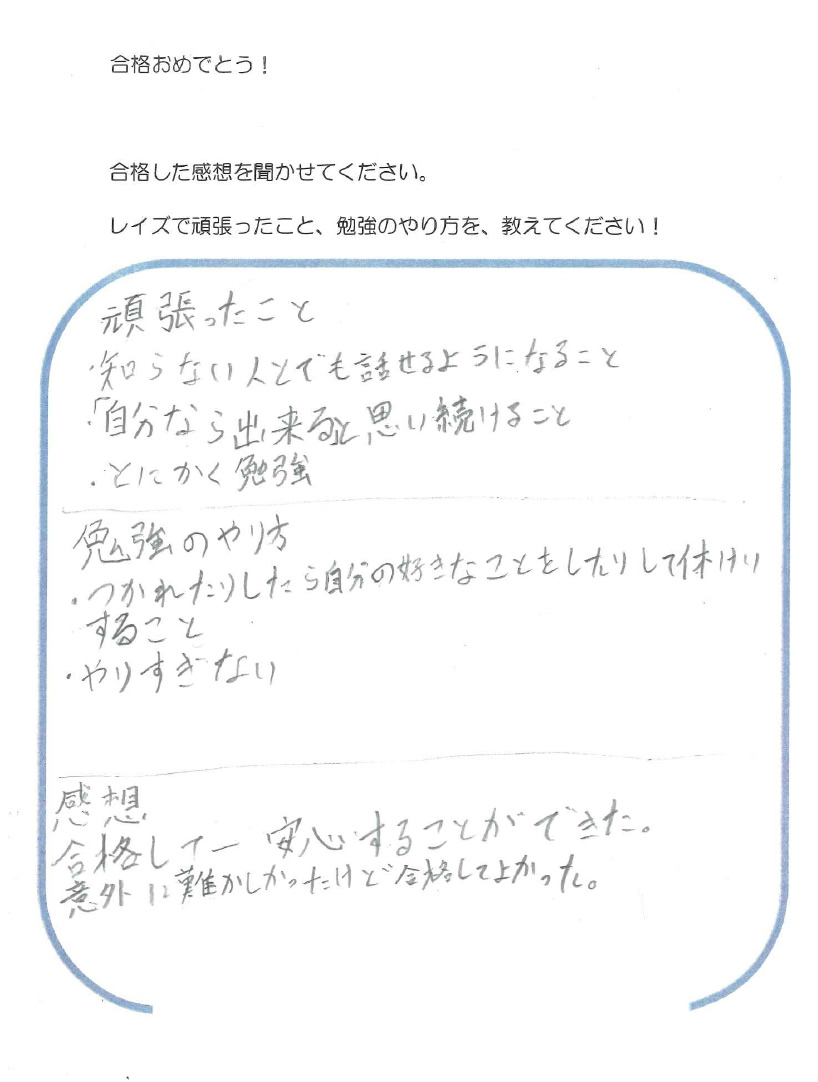 合格おめでとう！
合格した感想を聞かせてください。
レイズで頑張ったこと、勉強のやり方を、教えてください！
頑張ったこと
・知らない人とでも話せるようになること
・「自分なら出来る」と思い続けること
・とにかく勉強
勉強のやり方
・つかれたりしたら自分の好きなことをしたりして休けり
すること
・やりすぎない
感想
合格して一安心することができた。
意外に難かしかったけど合格してよかった。